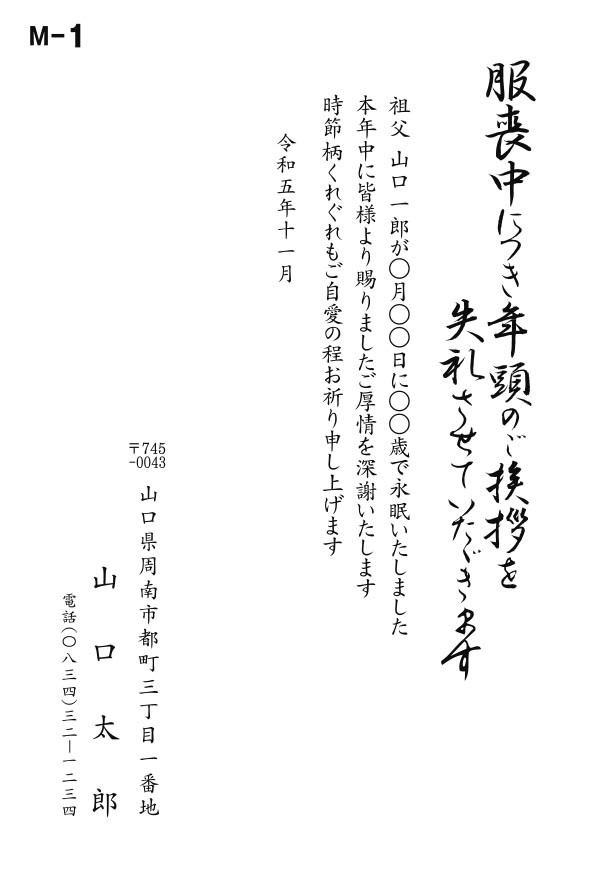 M-1
服喪中につき年頭のご挨拶を
失礼させていただきます
祖父 山口一郎が〇月〇〇日に〇〇歳で永眠いたしました
本年中に皆様より賜りましたご厚情を深謝いたします
時節柄くれぐれもご自愛の程お祈り申し上げます
令和五年十一月
〒745
-0043
山口県周南市都町三丁目一番地
山口太郎
電話(〇八三四)三二ー一二三四